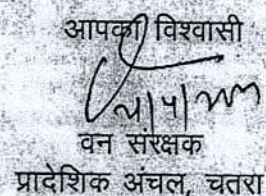 आपका विश्वासी
वन संरक्षक
प्रादेशिक अंचल, चतरा